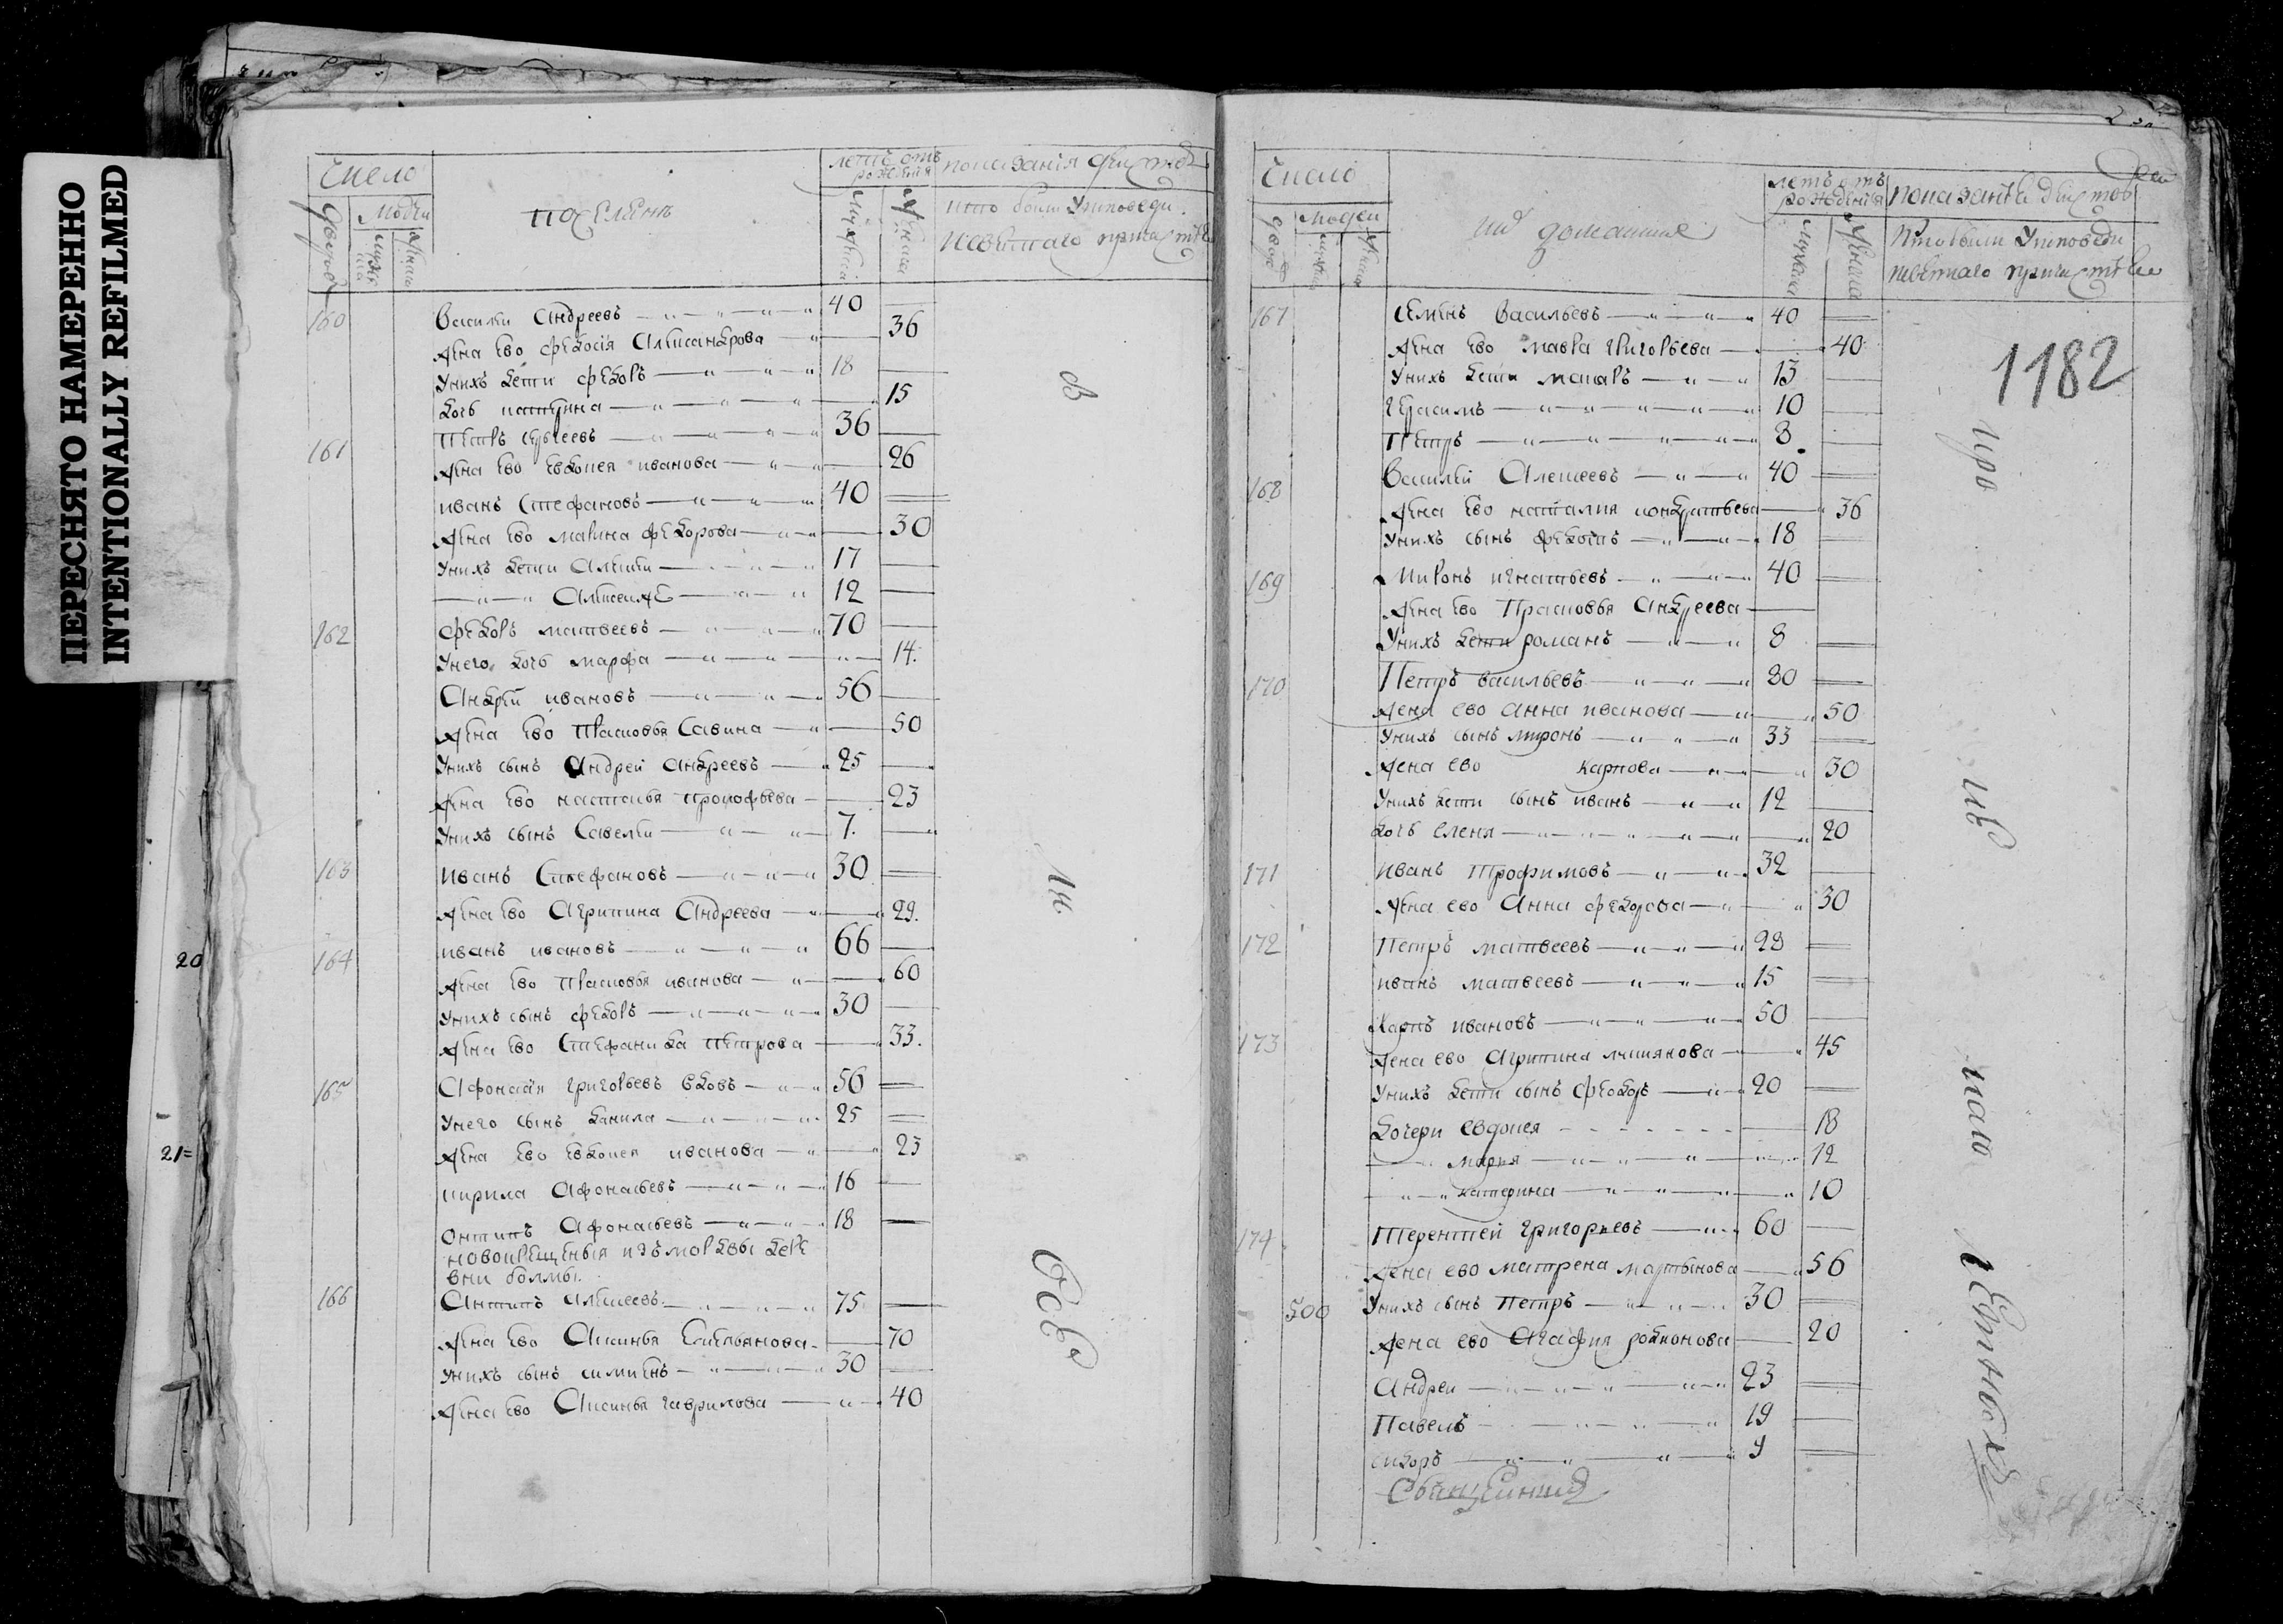 ПЕРЕСНЯТО НАМЕРЕННО
INTENTIONALLY REFILMED
20
21=
Число
людей
поселянъ
летъ отъ рождения
показания действъ
кто былъ у исповеди
и святаго причастия
160 Василий Андреевъ 40
жена ево Федосия Александрова 36
у нихъ дети Федоръ 18
дочь катерина 15
161 Петръ Сергеевъ 36
жена ево Евдокея иванова 26
иванъ Стефановъ 40
жена ево марина Федорова 30
у нихъ дети Алексей 17
Алексей же 12
162 Федоръ матвеевъ 70
у него дочь марфа 14.
Андрей ивановъ 56
жена ево Прасковья Савина 50
у нихъ сынъ Андрей Андреевъ 25
жена ево наталья прокофьева 23
у нихъ сынъ Савелий 7.
163 иванъ Стефановъ 30
жена ево Агрипина Андреева 29.
164 иванъ ивановъ 66
жена ево Прасковья иванова 60
у нихъ сынъ Федоръ 30
жена ево Стефанида петрова 33.
165 Афонасия григорьевъ вдовъ 56
у него сынъ данила 25
жена ево Евдокея иванова 23
кирила Афонасьевъ 16
онтипъ Афонасьевъ 18
новокрещеныя изъ мордвы дере
вни
166 Антипъ Алексеевъ 75
жена ево Аксинья Емельянова 70
у нихъ сынъ 30
жена ево Аксинья гаврилова 40
Число
людей
их домашние
летъ отъ рождения
показание действъ
кто были у исповеди
и святаго причастия
1182
167 Семенъ Васильевъ 40
жена ево мавра григорьева 40
у нихъ дети макаръ 13
герасимъ 10
Петръ 8
168 Василий Алексеевъ 40
жена ево наталия кондратьева 36
у нихъ сынъ Федотъ 18
169 миронъ игнатьевъ 40
жена ево Прасковья Андреева
у нихъ дети романъ 8
170 Петръ васильевъ 80
жена ево анна иванова 50
у нихъ сынъ миронъ 33
жена ево карпова 30
у нихъ дети сынъ иванъ 12
дочь елена 20
171 иванъ Трофимовъ 32
жена ево Анна Федорова 30
172 Петръ матвеевъ 28
иванъ матвеевъ 15
173 Карпъ ивановъ 50
жена ево Агрипина 45
у нихъ дети сынъ Феодоръ 20
дочери евдокея 18
мария 12
катерина 10
174 Терентей григорьевъ 60
жена ево матрена мартынова 56
500 у нихъ сынъ Петръ 30
жена ево Агафия родионова 20
Андреи 23
Павелъ 19
сидоръ 9
Священникъ